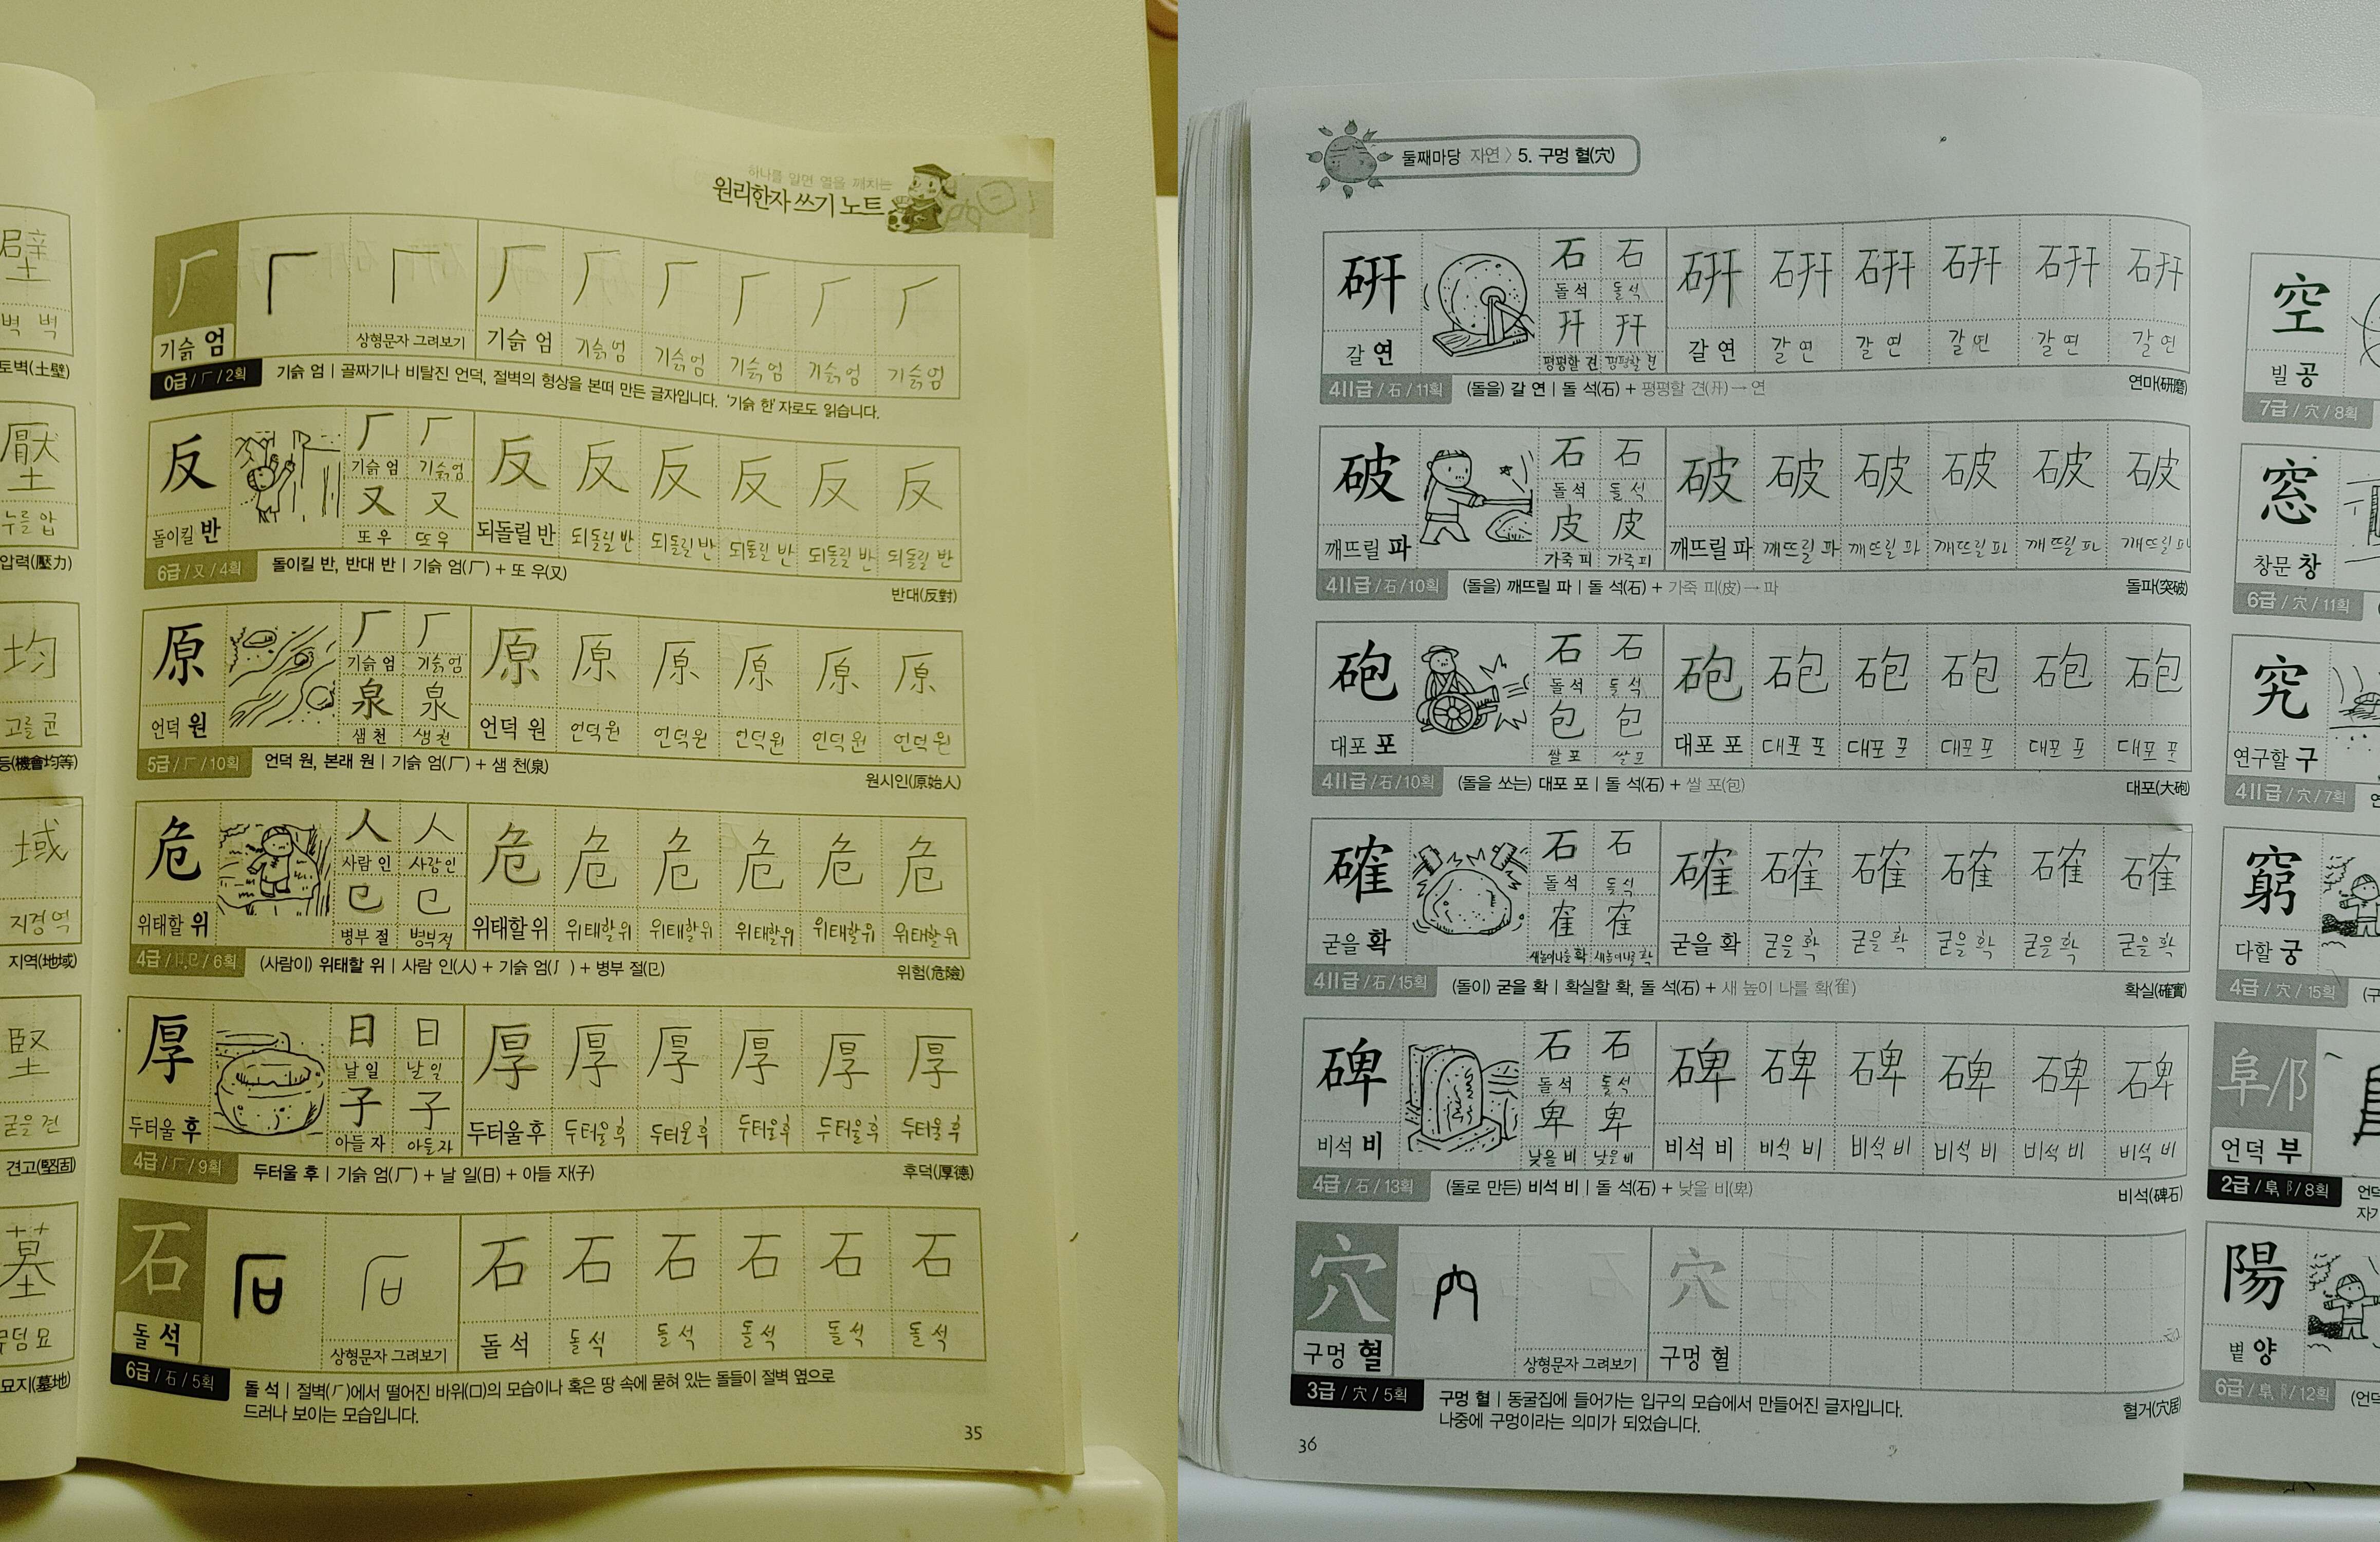 하나를 알면 열을 깨치는
원리한자 쓰기 노트
厂 厂 厂 厂 厂 厂 厂 厂
기슭 엄 상형문자 그려보기 기슭 엄 기슭 엄 기슭 엄 기슭 엄 기슭 엄 기슭 엄
0급 / 厂 / 2획 기슭 엄 | 골짜기나 비탈진 언덕, 절벽의 형상을 본떠 만든 글자입니다. '기슭 한' 자로도 읽습니다.
反 厂 厂 反 反 反 反 反 反
기슭 엄 기슭 엄
又 又
돌이킬 반 또 우 또 우 되돌릴 반 되돌릴 반 되돌릴 반 되돌릴 반 되돌릴 반 되돌릴 반
6급 / 又 / 4획 돌이킬 반, 반대 반 | 기슭 엄(厂) + 또 우(又)
반대(反對)
原 厂 厂 原 原 原 原 原 原
기슭 엄 기슭 엄
泉 泉
언덕 원 샘 천 샘 천 언덕 원 언덕 원 언덕 원 언덕 원 언덕 원 언덕 원
5급 / 厂 / 10획 언덕 원, 본래 원 | 기슭 엄(厂) + 샘 천(泉)
원시인(原始人)
危 人 人 危 危 危 危 危 危
사람 인 사람 인
㔾 㔾
위태할 위 병부 절 병부 절 위태할 위 위태할 위 위태할 위 위태할 위 위태할 위 위태할 위
4급 / 㔾 / 6획 (사람이) 위태할 위 | 사람 인(人) + 기슭 엄(厂) + 병부 절(㔾)
위험(危險)
厚 日 日 厚 厚 厚 厚 厚 厚
날 일 날 일
子 子
두터울 후 아들 자 아들 자 두터울 후 두터울 후 두터울 후 두터울 후 두터울 후 두터울 후
4급 / 厂 / 9획 두터울 후 | 기슭 엄(厂) + 날 일(日) + 아들 자(子)
후덕(厚德)
石 石 石 石 石 石 石
돌 석 상형문자 그려보기 돌 석 돌 석 돌 석 돌 석 돌 석 돌 석
6급 / 石 / 5획 돌 석 | 절벽(厂)에서 떨어진 바위(口)의 모습이나 혹은 땅 속에 묻혀 있는 돌들이 절벽 옆으로
드러나 보이는 모습입니다.
35
壁
벽 벽
토벽(土壁)
壓
누를 압
압력(壓力)
均
고를 균
등(機會均等)
域
지경 역
지역(地域)
堅
굳을 견
견고(堅固)
墓
무덤 묘
묘지(墓地)
둘째마당 자연 〉 5. 구멍 혈(穴)
硏 石 石 硏 硏 硏 硏 硏 硏
돌 석 돌 석
幵 幵
갈 연 평평할 견 평평할 견 갈 연 갈 연 갈 연 갈 연 갈 연 갈 연
4II급 / 石 / 11획 (돌을) 갈 연 | 돌 석(石) + 평평할 견(幵) → 연
연마(硏磨)
破 石 石 破 破 破 破 破 破
돌 석 돌 석
皮 皮
깨뜨릴 파 가죽 피 가죽 피 깨뜨릴 파 깨뜨릴 파 깨뜨릴 파 깨뜨릴 파 깨뜨릴 파 깨뜨릴 파
4II급 / 石 / 10획 (돌을) 깨뜨릴 파 | 돌 석(石) + 가죽 피(皮) → 파
돌파(突破)
砲 石 石 砲 砲 砲 砲 砲 砲
돌 석 돌 석
包 包
대포 포 쌀 포 쌀 포 대포 포 대포 포 대포 포 대포 포 대포 포 대포 포
4II급 / 石 / 10획 (돌을 쏘는) 대포 포 | 돌 석(石) + 쌀 포(包)
대포(大砲)
確 石 石 確 確 確 確 確 確
돌 석 돌 석
隺 隺
굳을 확 새높이나를 확 새높이나를 확 굳을 확 굳을 확 굳을 확 굳을 확 굳을 확 굳을 확
4II급 / 石 / 15획 (돌이) 굳을 확 | 확실할 확, 돌 석(石) + 새 높이 나를 확(隺)
확실(確實)
碑 石 石 碑 碑 碑 碑 碑 碑
돌 석 돌 석
卑 卑
비석 비 낮을 비 낮을 비 비석 비 비석 비 비석 비 비석 비 비석 비 비석 비
4급 / 石 / 13획 (돌로 만든) 비석 비 | 돌 석(石) + 낮을 비(卑)
비석(碑石)
穴 穴
구멍 혈 상형문자 그려보기 구멍 혈
3급 / 穴 / 5획 구멍 혈 | 동굴집에 들어가는 입구의 모습에서 만들어진 글자입니다.
나중에 구멍이라는 의미가 되었습니다.
혈거(穴居)
36
空
빌 공
7급 / 穴 / 8획
窓
창문 창
6급 / 穴 / 11획
究
연구할 구
4II급 / 穴 / 7획
窮
다할 궁
4급 / 穴 / 15획
阜/阝
언덕 부
2급 / 阜, 阝 / 8획
陽
볕 양
6급 / 阜, 阝 / 12획